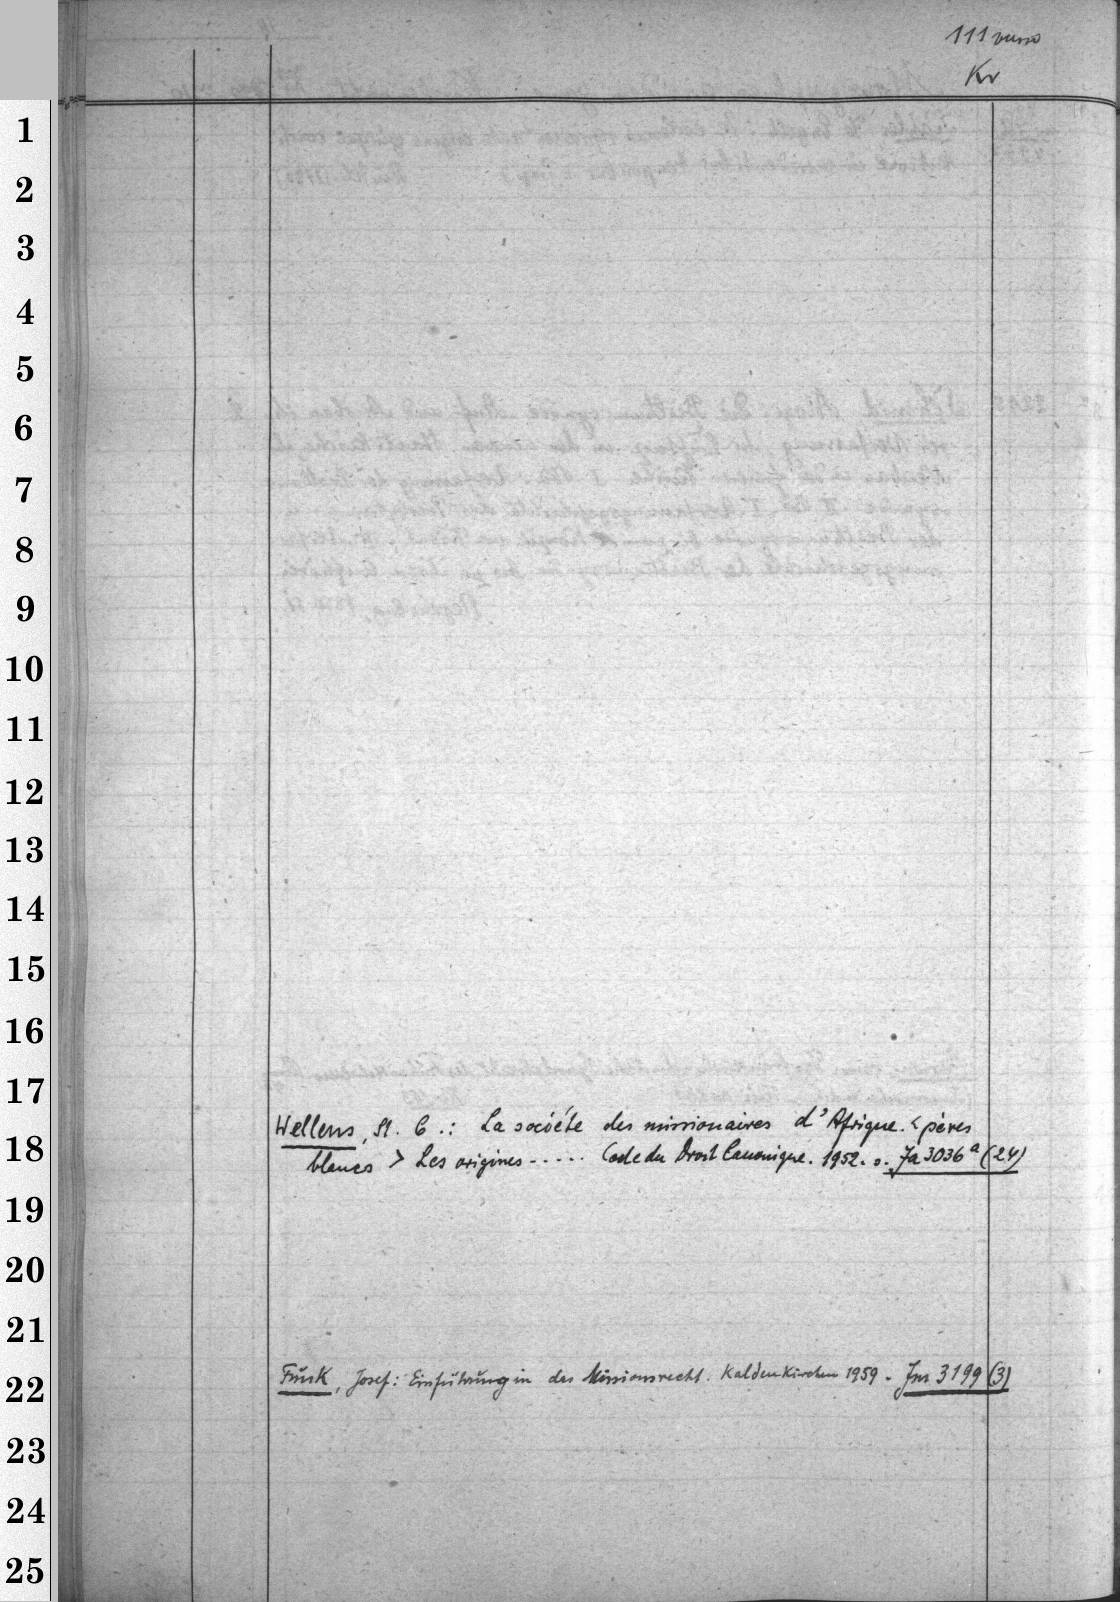 111 verso
Kr
1
2
3
4
5
6
7
8
9
10
11
12
13
14
15
16
17
Wellens, St. C.: La société des missionaires d'Afrique. < pères
18
blancs > Les origines ..... Code du Droit Canonique. 1952. s. Ja 3036 a (24)
19
20
21
Funk, Josef: Einführung in das Missionsrecht. Kaldenkirchen 1959 - Jm 3199 (3)
22
23
24
25